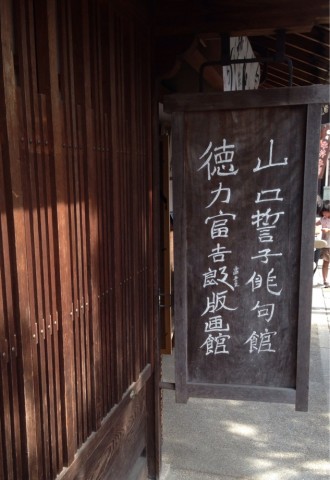 山口誓子俳句館
徳力富吉郎版画館